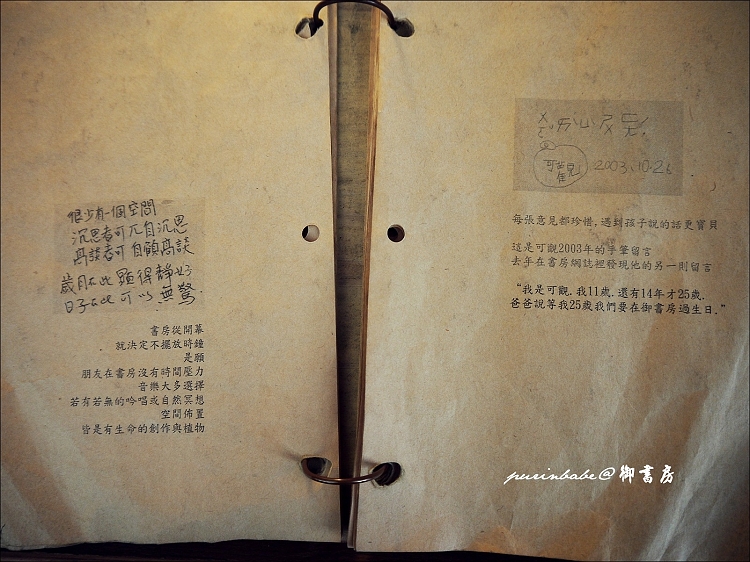 很少有一個空間
沉思者可兀自沉思
高談者可自顧高談
歲月在此顯得靜好
日子在此可以無驚
書房從開幕
就決定不擺放時鐘
是願
朋友在書房沒有時間壓力
音樂大多選擇
若有若無的吟唱或自然冥想
空間佈置
皆是有生命的創作與植物
2003.10.26
每張意見都珍惜，遇到孩子說的話更寶貝
這是可觀2003年的手筆留言
去年在書房網誌裡發現他的另一則留言
“我是可觀.我11歲.還有14年才25歲.
爸爸說等我25歲我們要在御書房過生日.”
purinbabe@御書房